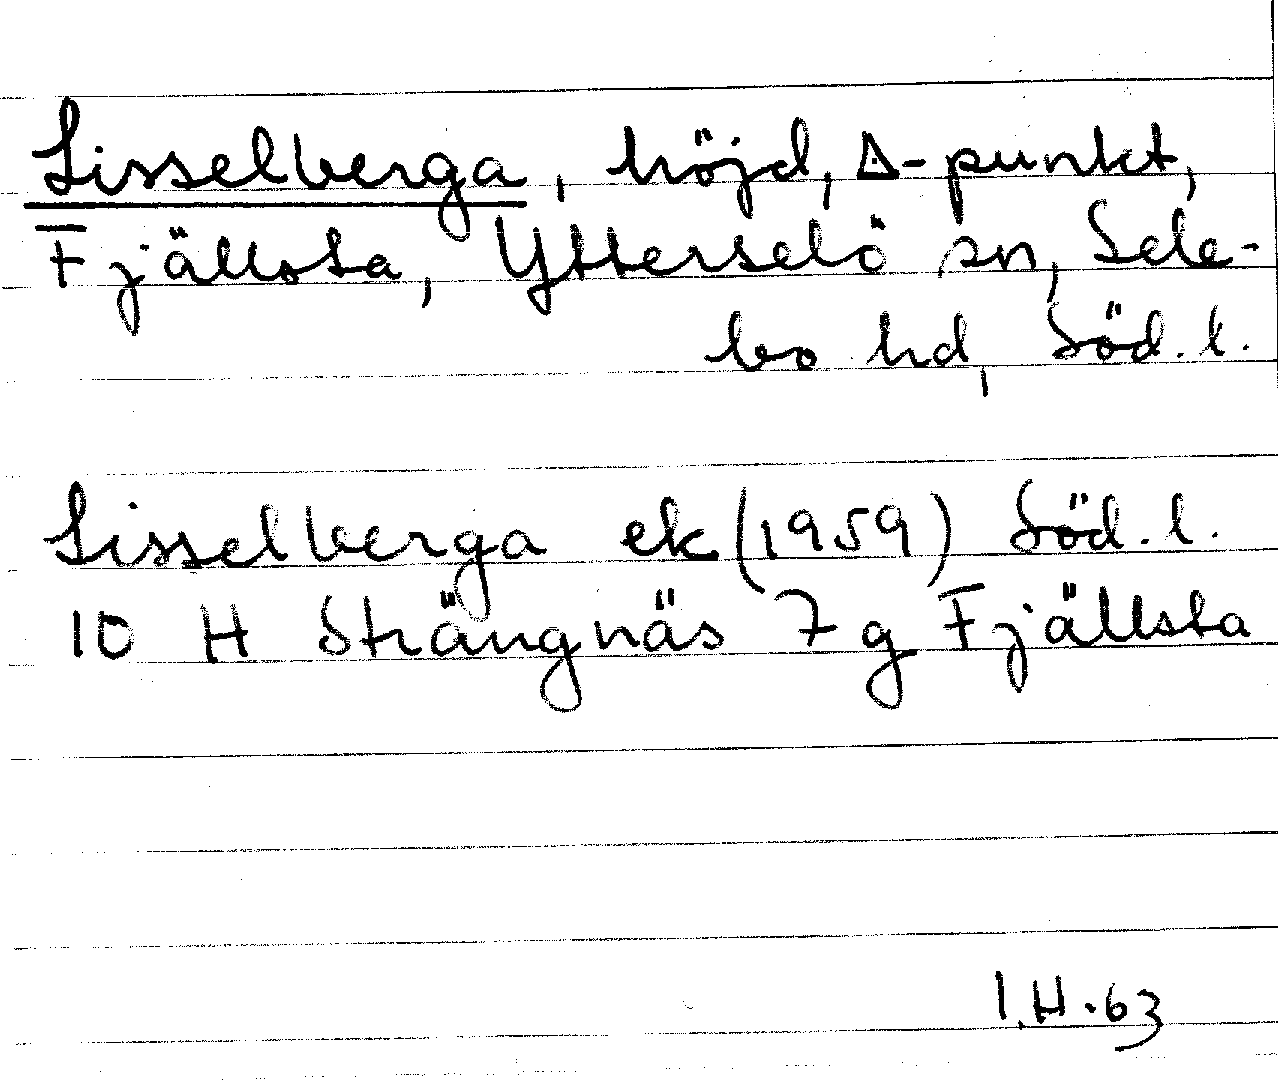 Lisselberga, höjd, △-punkt,
Fjällsta, Ytterselö sn, Sele-
bo hd, Söd. l.
Lisselberga ek (1959) Söd. l.
10 H Strängnäs 7 g Fjällsta
I.H.63